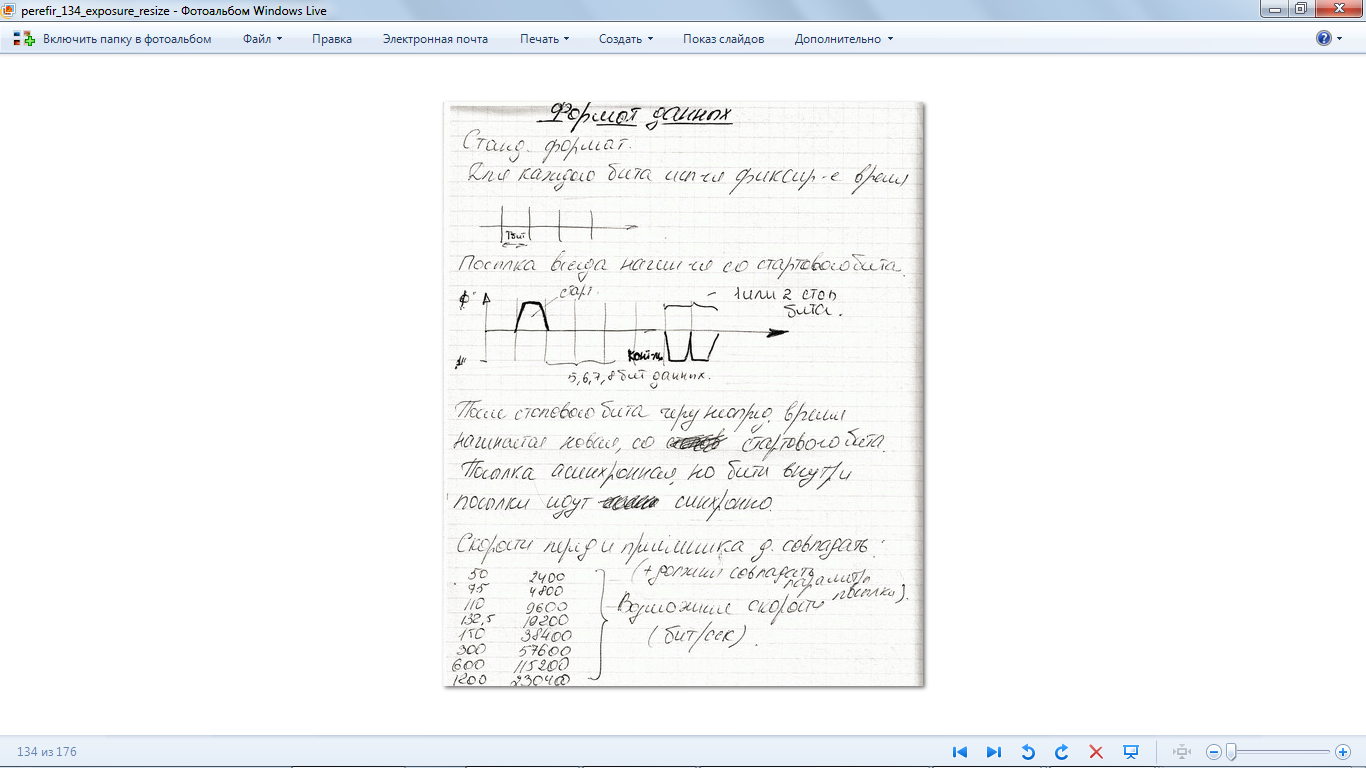 perefir_134_exposure_resize - Фотоальбом Windows Live
Включить папку в фотоальбом Файл Правка Электронная почта Печать Создать Показ слайдов Дополнительно
Формат данных
Станд. формат.
Для каждого бита исп-ся фиксир-е время
1бит
Посылка всегда начин-ся со стартового бита.
"0" старт. 1 или 2 стоп
бита.
"1" контр.
5,6,7,8 бит данных.
После стопового бита через неопред. время
начинается новая, со стартового бита.
Посылка асинхронная, но биты внутри
посылки идут синхронно.
Скорости перед и приёмника д. совпадать:
50 2400 (+ должны совпадать параметры
75 4800 посылки).
110 9600 Возможные скорости
132,5 19200
150 38400 (бит/сек).
300 57600
600 115200
1200 230400
134 из 176